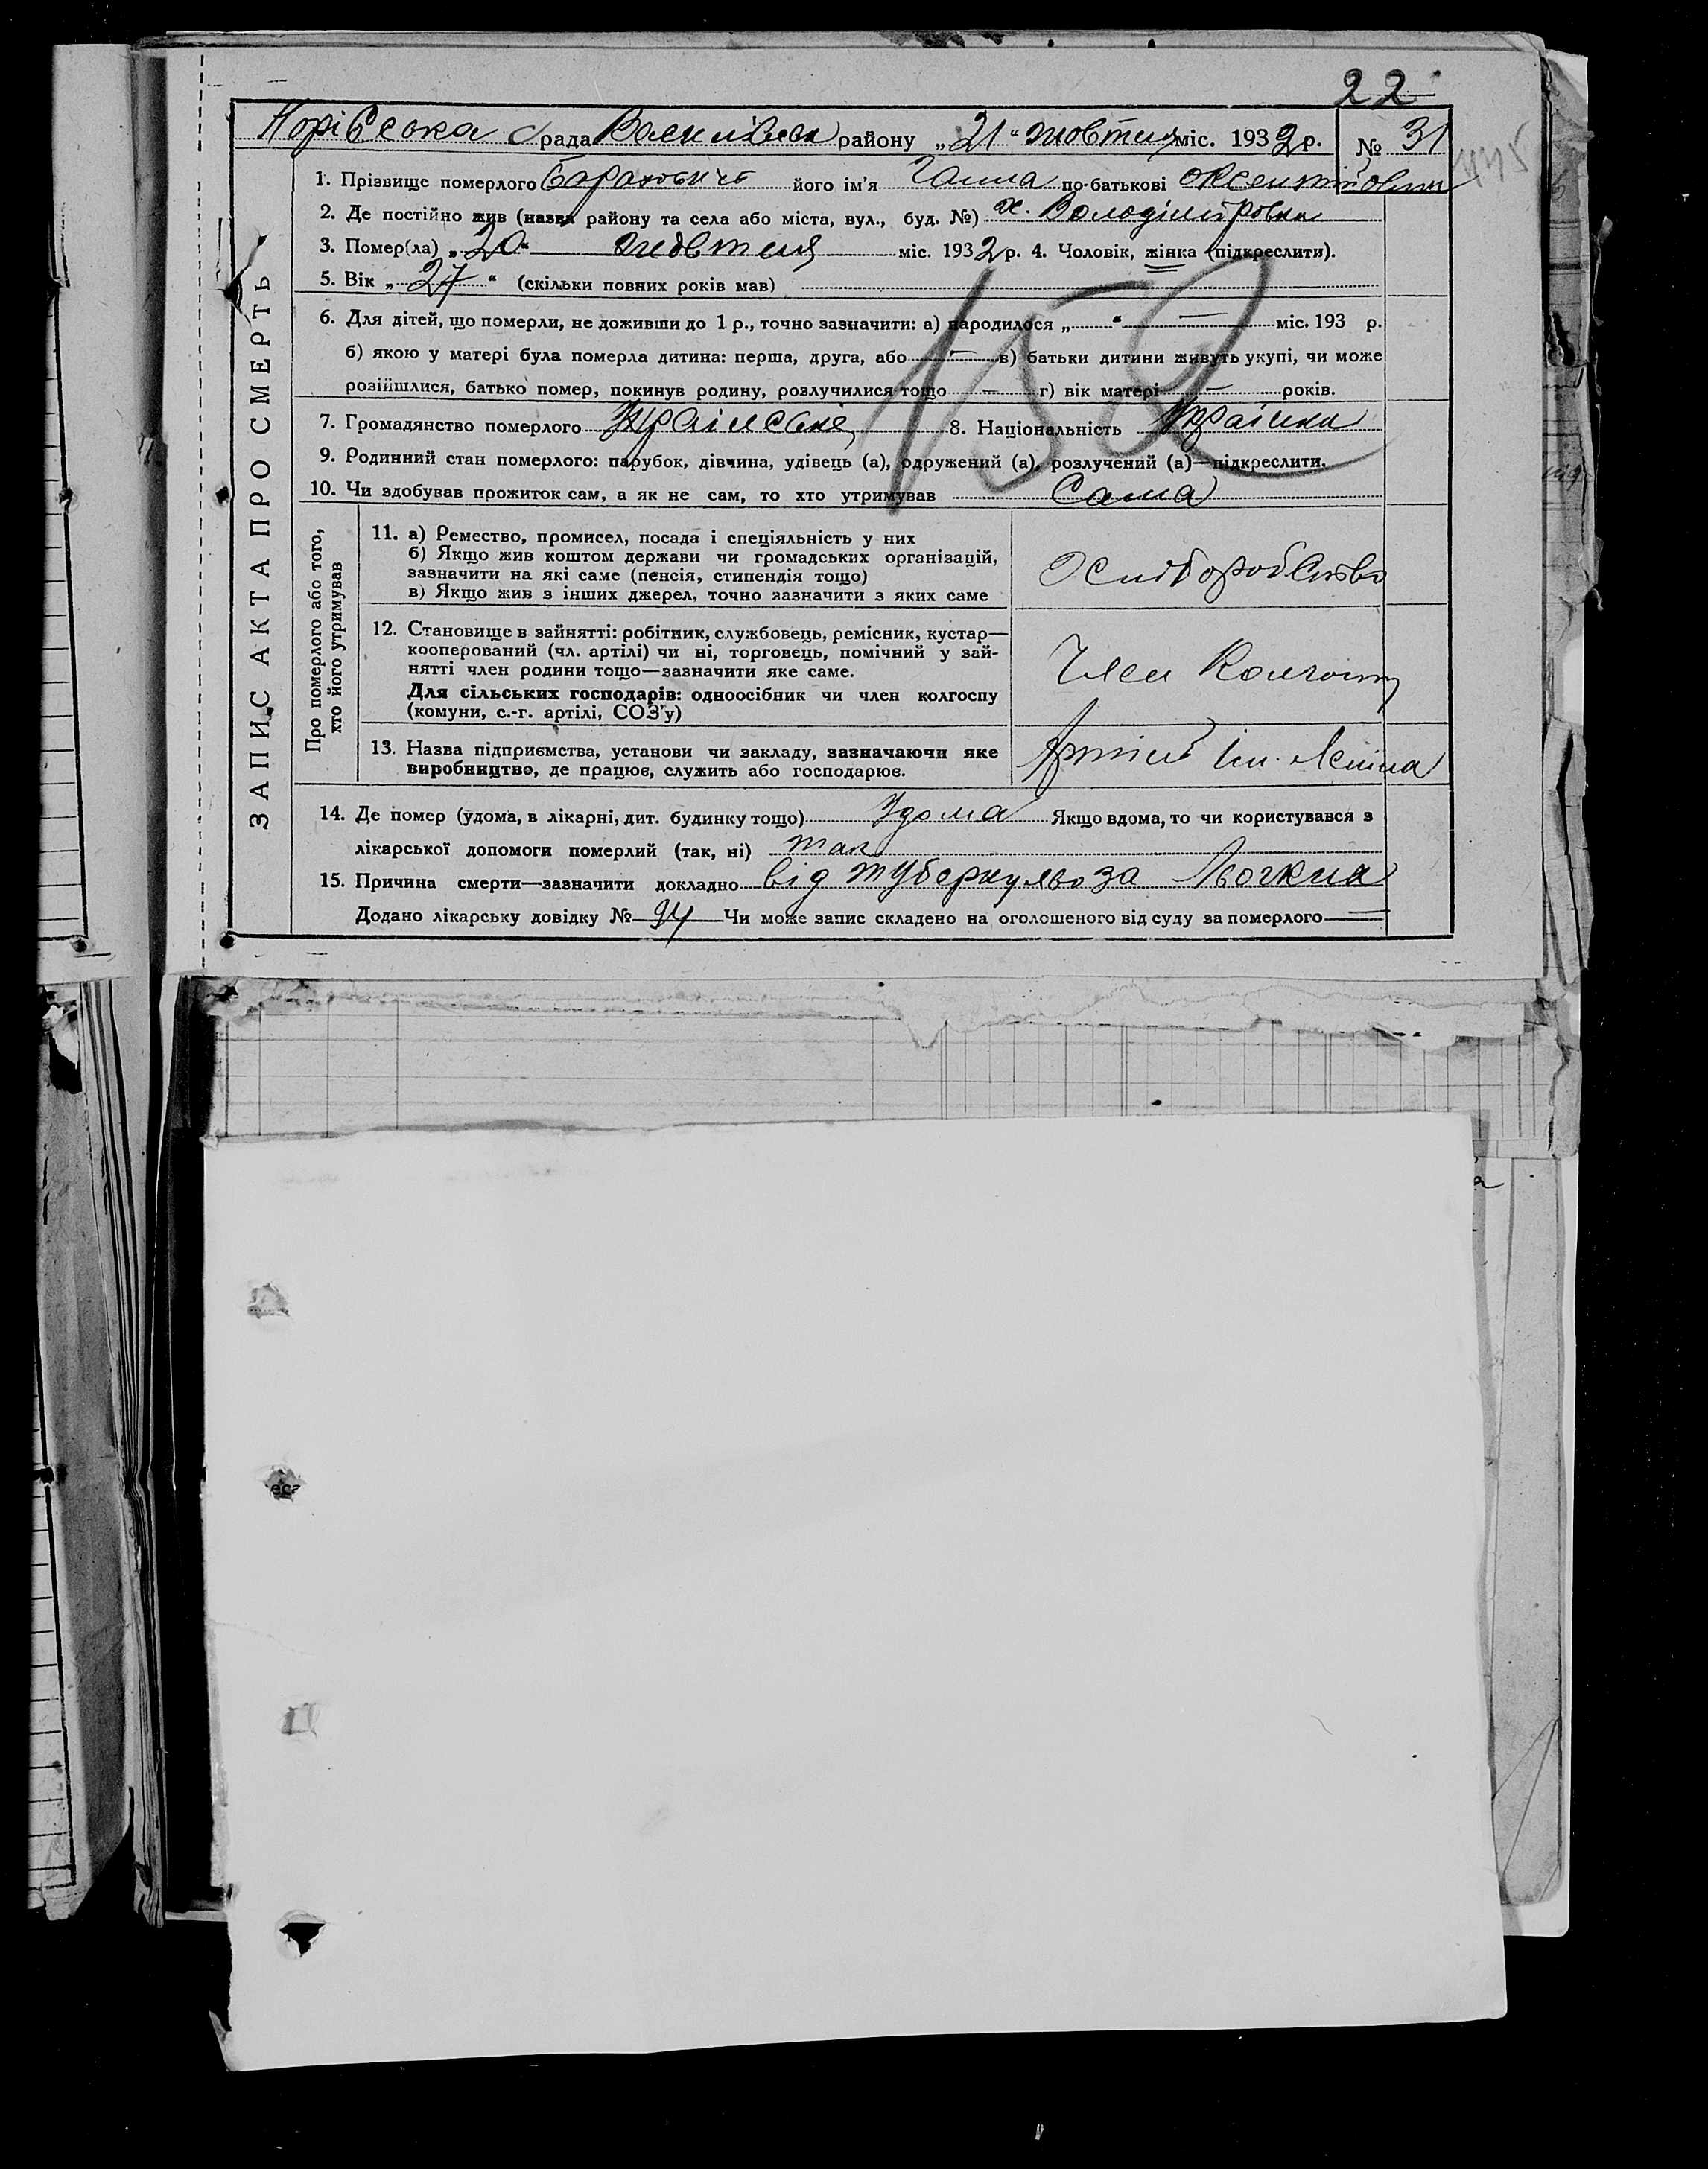 22
Норівська с рада Васильівськ району „21“ жовтня міс. 1932 р. № 31
1. Прізвище померлого Барановича його ім’я Ганна по-батькові Оксентійовна
2. Де постійно жив (назва району та села або міста, вул., буд. №) х. Володімі ровка
3. Помер(ла) „20“ жовтня міс. 1932 р. 4. Чоловік, жінка (підкреслити).
5. Вік „27“ (скільки повних років мав)
6. Для дітей, що померли, не доживши до 1 р., точно зазначити: а) народилося „ “ — міс. 193 р.
б) якою у матері була померла дитина: перша, друга, або — в) батьки дитини живуть укупі, чи може
розійшлися, батько помер, покинув родину, розлучилися тощо — г) вік матері — років.
7. Громадянство померлого Українське 8. Національність Українка
9. Родинний стан померлого: парубок, дівчина, удівець (а), одружений (а), розлучений (а)—підкреслити.
10. Чи здобував прожиток сам, а як не сам, то хто утримував Сама
152
ЗАПИС АКТА ПРО СМЕРТЬ
Про померлого або того,
хто його утримував
11. а) Ремество, промисел, посада і спеціяльність у них
б) Якщо жив коштом держави чи громадських організацій,
зазначити на які саме (пенсія, стипендія тощо)
в) Якщо жив з інших джерел, точно зазначити з яких саме
Хліборобство
12. Становище в зайнятті: робітник, службовець, ремісник, кустар—
кооперований (чл. артілі) чи ні, торговець, помічний у зай-
нятті член родини тощо—зазначити яке саме.
Для сільських господарів: одноосібник чи член колгоспу
(комуни, с.-г. артілі, СОЗ’у)
Член Колгоспу
13. Назва підприємства, установи чи закладу, зазначаючи яке
виробництво, де працює, служить або господарює.
Артіль ім. Леніна
14. Де помер (удома, в лікарні, дит. будинку тощо) Удома Якщо вдома, то чи користувався з
лікарської допомоги померлий (так, ні) так
15. Причина смерти—зазначити докладно від туберкульоза Льогких
Додано лікарську довідку № 94 Чи може запис складено на оголошеного від суду за померлого —